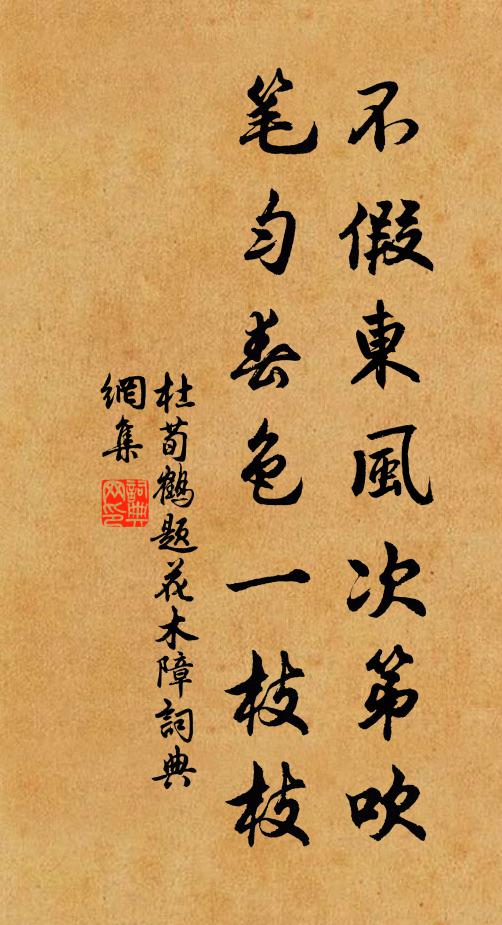 不假東風次第吹
笔匀春色一枝枝
杜荀鶴題花木障詞典
網集
詞典網印